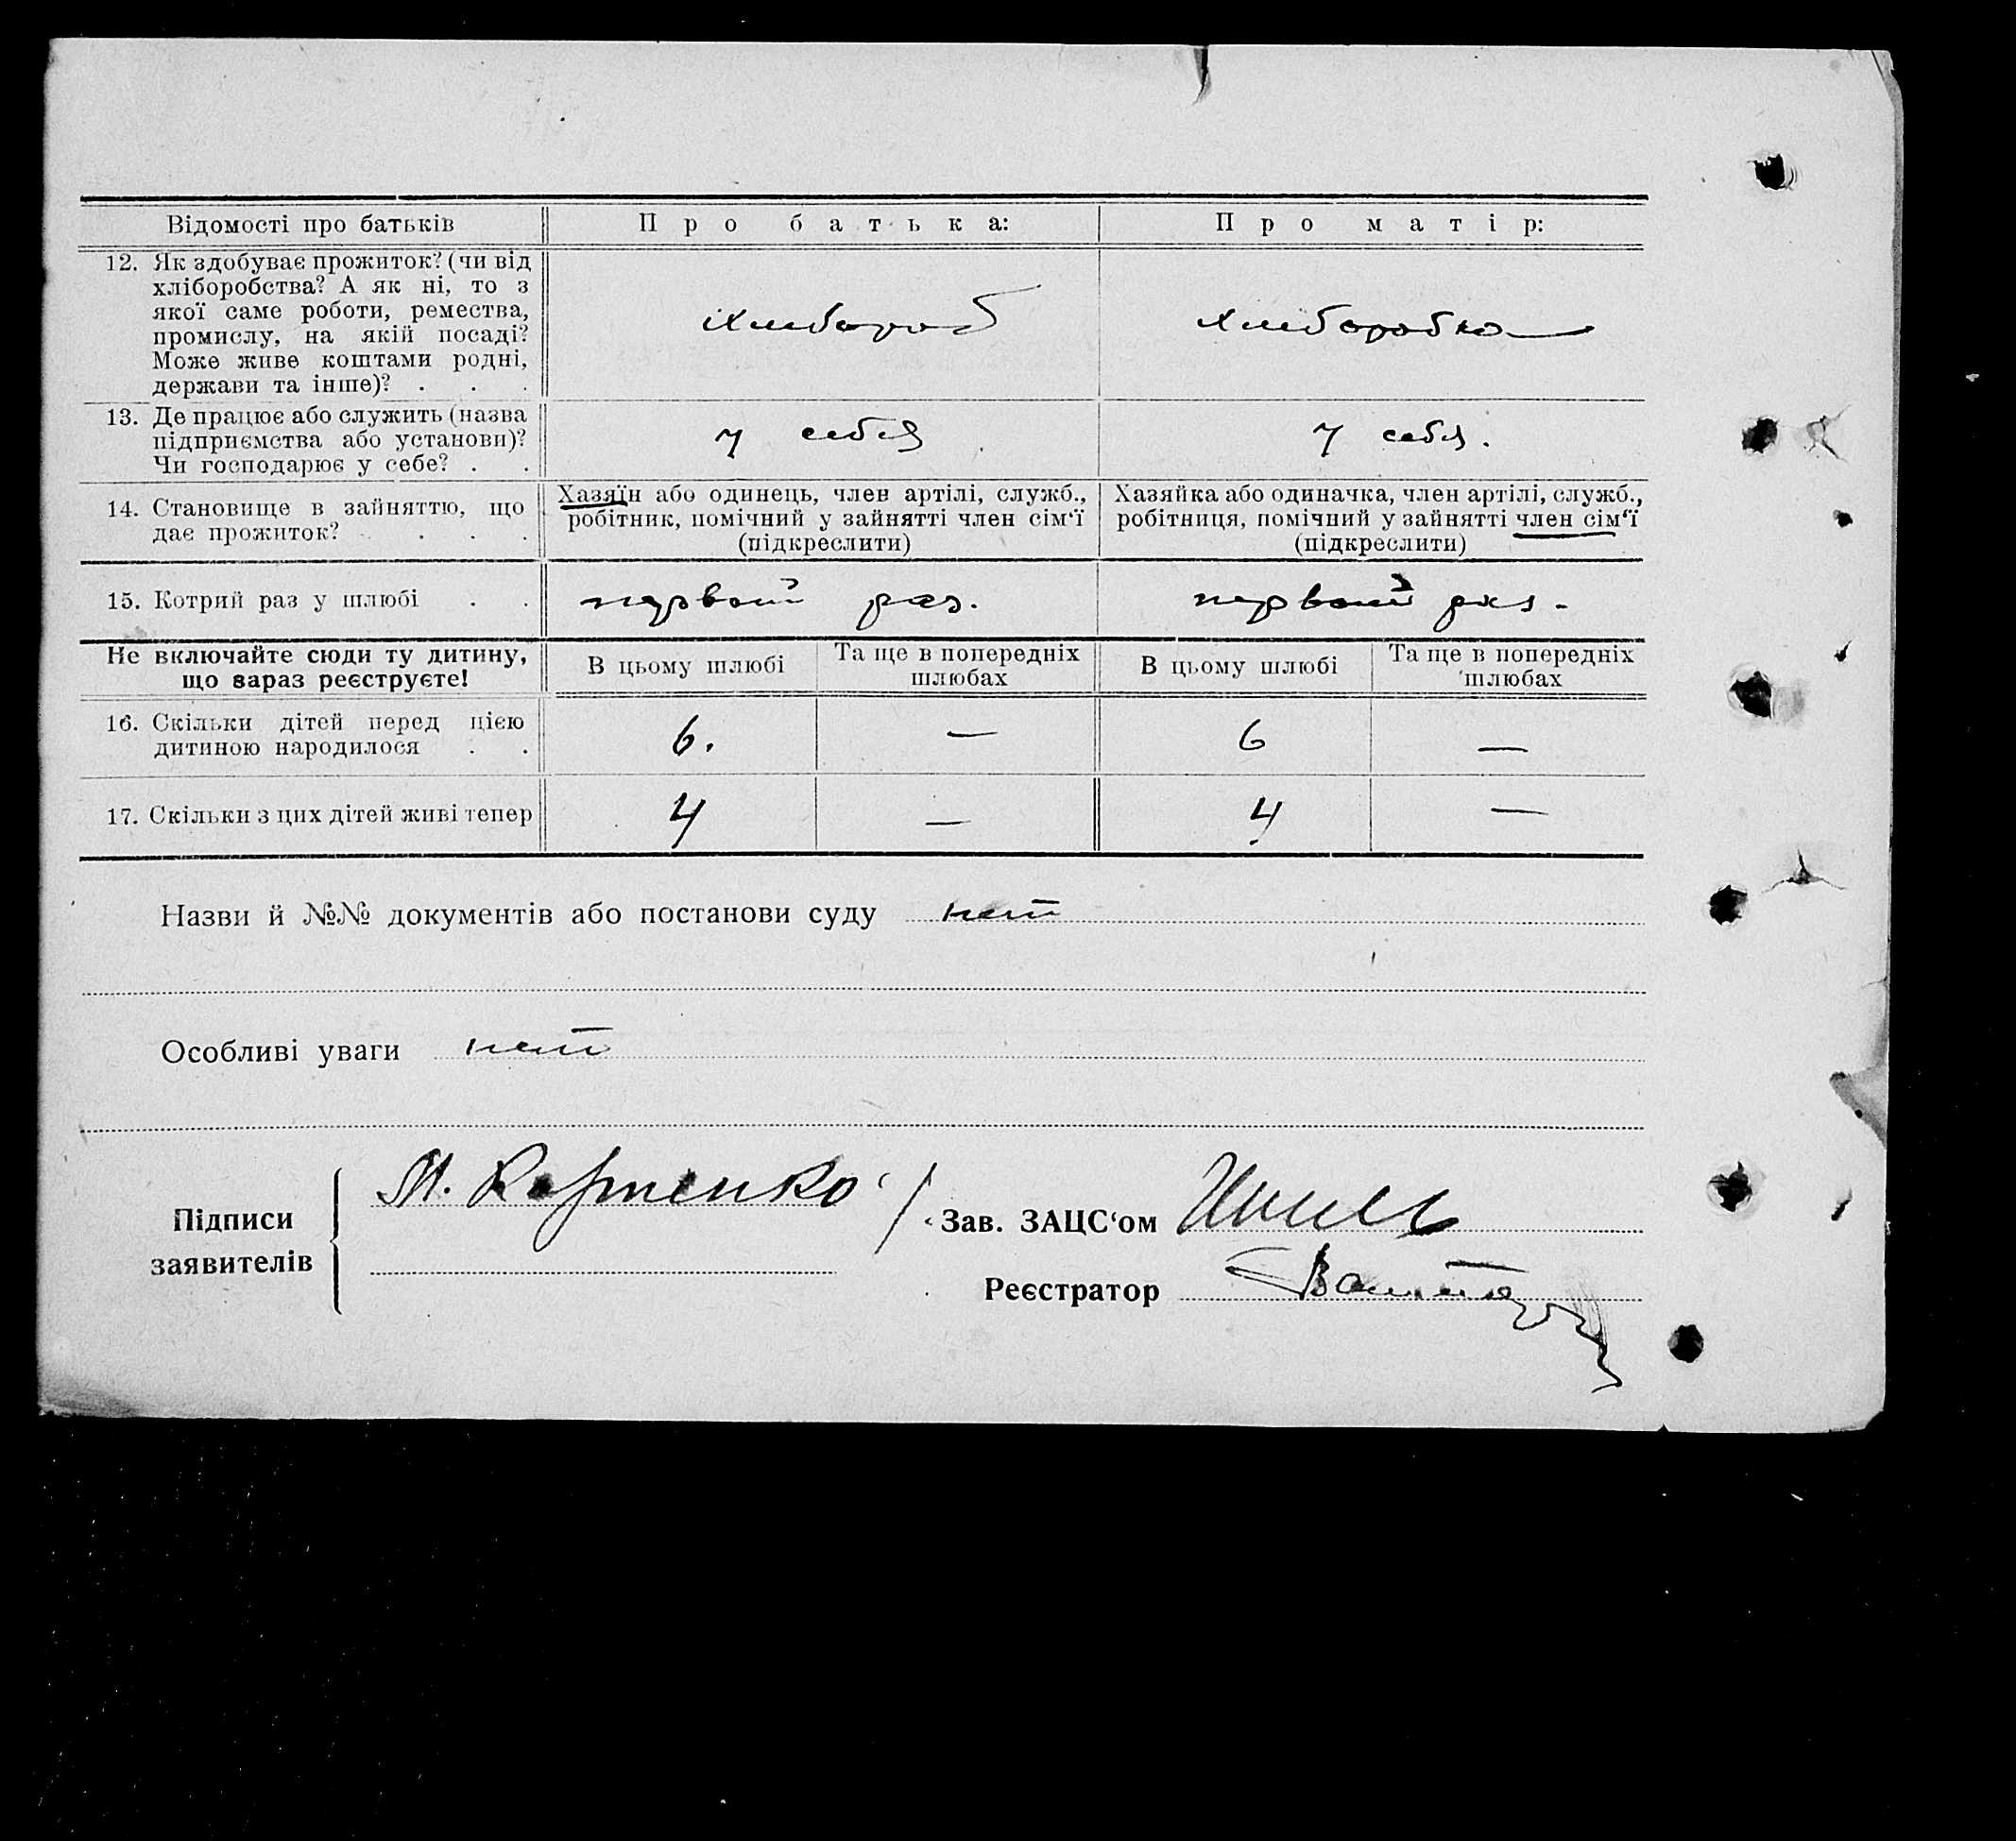 Відомості про батьків
Про батька:
Про матір:
12. Як здобуває прожиток? (чи від
хліборобства? А як ні, то з
якої саме роботи, ремества,
промислу, на якій посаді?
Може живе коштами родні,
держави та інше)? . . .
хлибороб
хлиборобка
13. Де працює або служить (назва
підприємства або установи)?
Чи господарює у себе? . .
у себя
у себя.
14. Становище в зайняттю, що
дає прожиток? . . . .
Хазяїн або одинець, член артілі, служб.,
робітник, помічний у зайнятті член сім‘ї
(підкреслити)
Хазяйка або одиначка, член артілі, служб.,
робітниця, помічний у зайнятті член сім‘ї
(підкреслити)
15. Котрий раз у шлюбі . .
первый раз.
первый раз.
Не включайте сюди ту дитину,
що зараз реєструєте!
В цьому шлюбі
Та ще в попередніх
шлюбах
В цьому шлюбі
Та ще в попередніх
шлюбах
16. Скільки дітей перед цією
дитиною народилося . .
6.
—
6
—
17. Скільки з цих дітей живі тепер
4
—
4
—
Назви й №№ документів або постанови суду нет
Особливі уваги нет
Підписи
заявителів
М.
Зав. ЗАЦС‘ом
Реєстратор